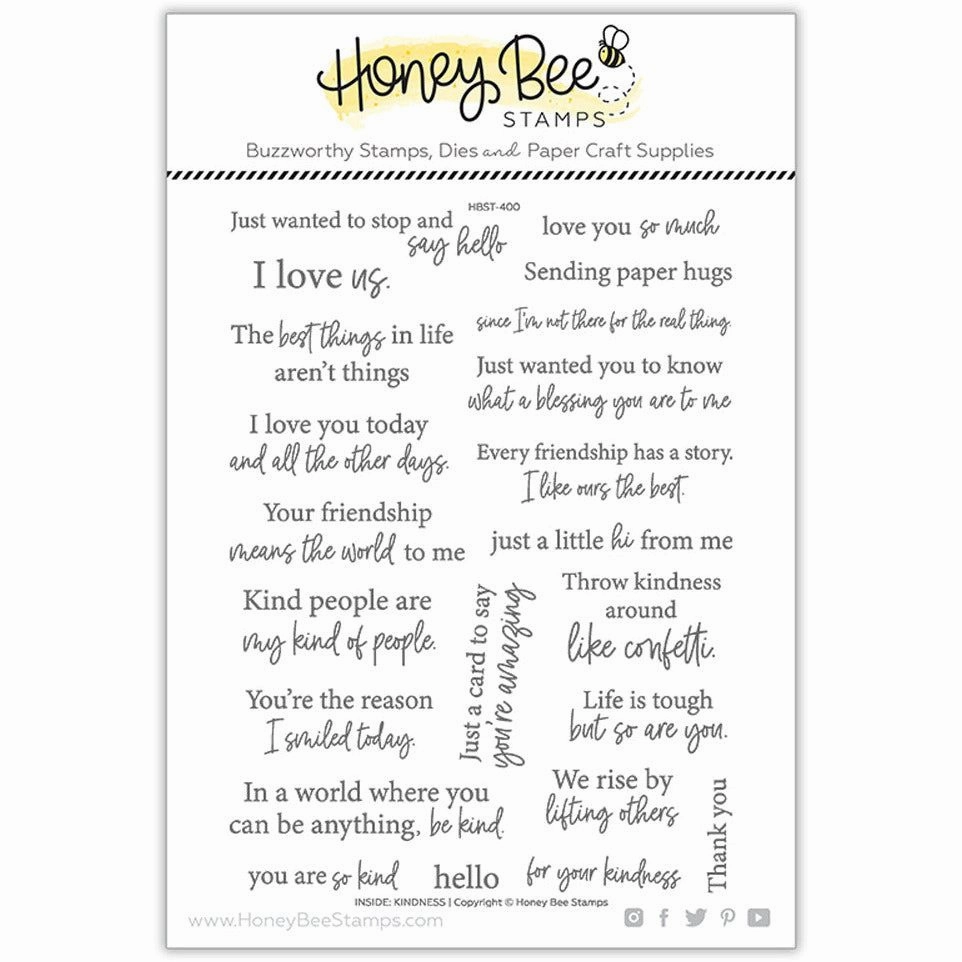 Honey Bee
STAMPS
Buzzworthy Stamps, Dies and Paper Craft Supplies
HBST-400
Just wanted to stop and
say hello
love you so much
I love us.
Sending paper hugs
since I'm not there for the real thing
The best things in life
aren't things
Just wanted you to know
what a blessing you are to me
I love you today
and all the other days.
Every friendship has a story.
I like ours the best.
Your friendship
means the world to me
just a little hi from me
Kind people are
my kind of people.
Just a card to say
you're amazing
Throw kindness
around
like confetti.
You're the reason
I smiled today.
Life is tough
but so are you.
In a world where you
can be anything, be kind.
We rise by
lifting others
Thank you
you are so kind
hello
for your kindness
INSIDE: KINDNESS | Copyright © Honey Bee Stamps
www.HoneyBeeStamps.com